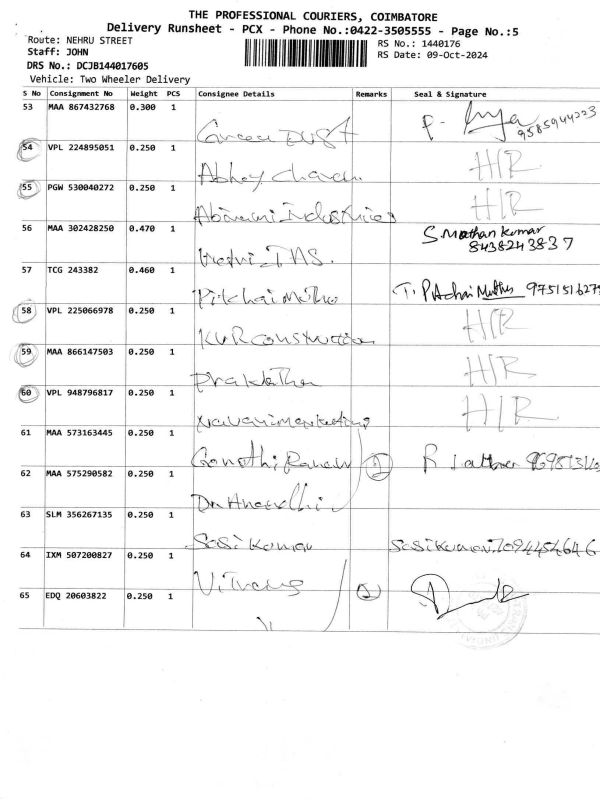 THE PROFESSIONAL COURIERS, COIMBATORE
Delivery Runsheet - PCX - Phone No.:0422-3505555 - Page No.:5
Route: NEHRU STREET
RS No.: 1440176
Staff: JOHN
RS Date: 09-Oct-2024
DRS No.: DCJB144017605
Vehicle: Two Wheeler Delivery
S No Consignment No Weight PCS Consignee Details Remarks Seal & Signature
53 MAA 867432768 0.300 1
9585944223
54 VPL 224895051 0.250 1
Abhay H/R
55 PGW 530040272 0.250 1
Abirami Industries H/R
56 MAA 302428250 0.470 1
S. Mathan kumar
8438243837
57 TCG 243382 0.460 1
Pitchai Muthu T. Pitchai Muthu
58 VPL 225066978 0.250 1
KVR Construction H/R
59 MAA 866147503 0.250 1
H/R
60 VPL 948796817 0.250 1
marketing H/R
61 MAA 573163445 0.250 1
2 R
62 MAA 575290582 0.250 1
Dr.
63 SLM 356267135 0.250 1
Sasi Kumar Sasikumar 7094454646
64 IXM 507200827 0.250 1
2
65 EDQ 20603822 0.250 1